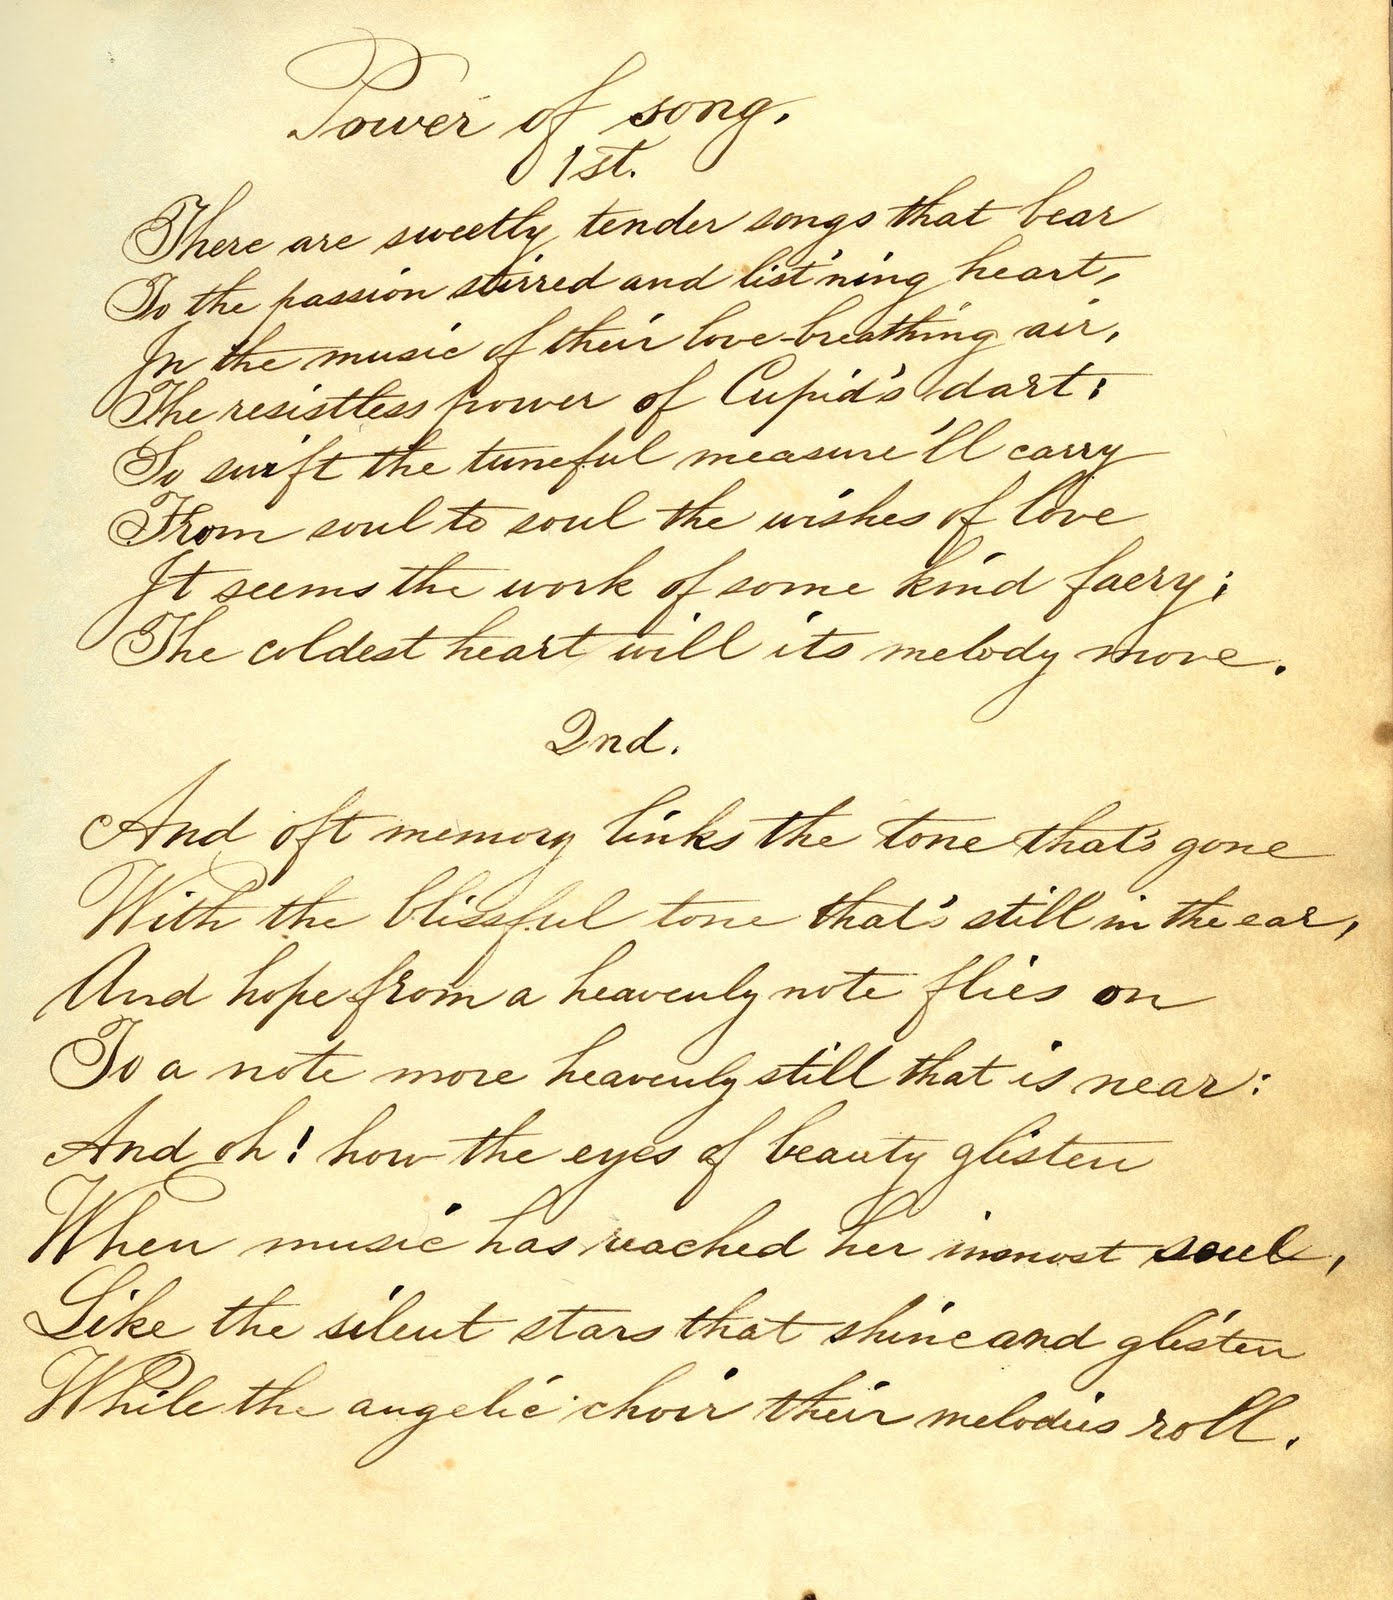 Power of song.
1st.
There are sweetly tender songs that bear
To the passion stirred and list'ning heart,
In the music of their love-breathing air,
The resistless power of Cupid's dart:
So swift the tuneful measure'll carry
From soul to soul the wishes of love
It seems the work of some kind faery;
The coldest heart will its melody move.
2nd.
And oft memory links the tone that's gone
With the blissful tone that's still in the ear,
And hope from a heavenly note flies on
To a note more heavenly still that is near:
And oh! how the eyes of beauty glisten
When music has reached her inmost soul,
Like the silent stars that shine and glisten
While the angelic choir their melodies roll.